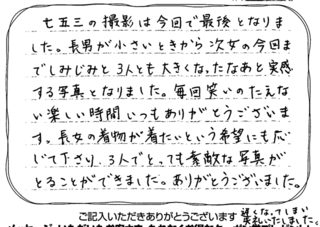 七五三の撮影は今回で最後となりま
した。長男が小さいときから次女の今回ま
でしみじみと3人とも大きくなったなあと実感
する写真となりました。毎回笑いのたえな
い楽しい時間いつもありがとうございま
す。長女の着物が着たいという希望にも応
じて下さり、3人でとっても素敵な写真が
とることができました。ありがとうございました。
ご記入いただきありがとうございます
遅くなってしまい
失礼いたしました。